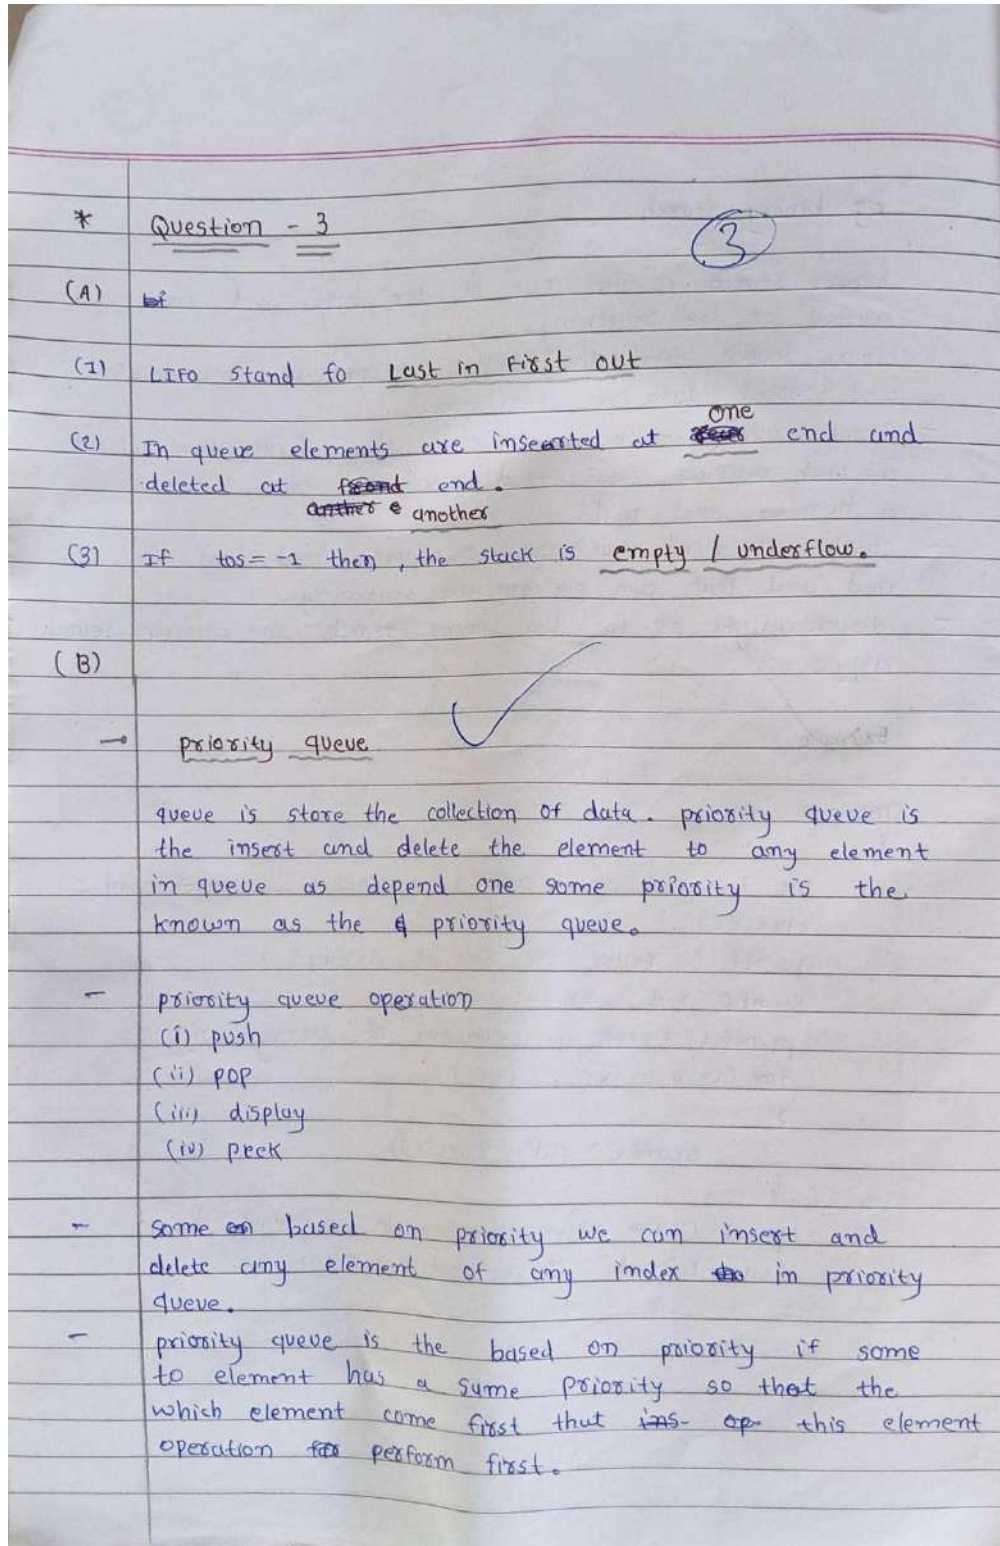 * Question - 3
3
(A)
(1) LIFO Stand fo Last in First out
one
(2) In queue elements are insearted at end and
deleted at end.
another
(3) If tos = -1 then, the stack is empty / underflow.
(B)
priority queue
queue is store the collection of data. priority queue is
the insert and delete the element to any element
in queue as depend one some priority is the
known as the priority queue.
- priority queue operation
(i) push
(ii) pop
(iii) display
(iv) peek
- some based on priority we can insert and
delete any element of any index in priority
queue.
- priority queue is the based on priority if some
to element has a same priority so that the
which element come first that this element
operation perform first.